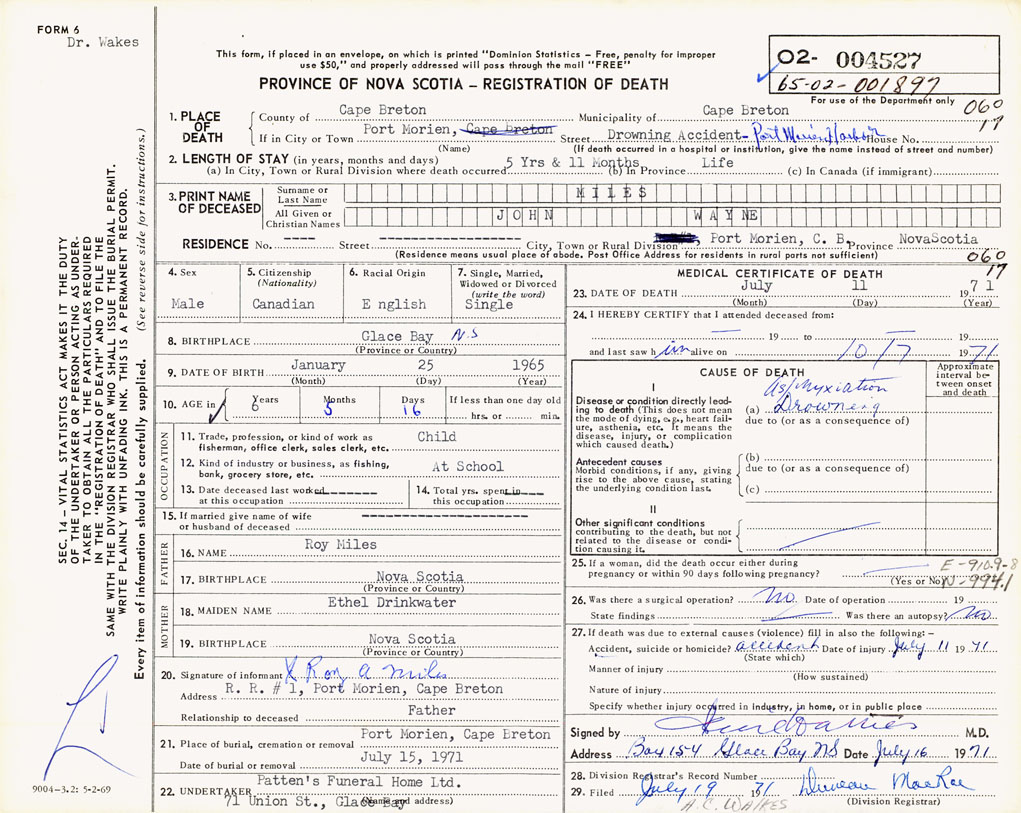 FORM 6
Dr. Wakes
This form, if placed in an envelope, on which is printed "Dominion Statistics – Free, penalty for improper
use $50," and properly addressed will pass through the mail "FREE"
PROVINCE OF NOVA SCOTIA – REGISTRATION OF DEATH
02- 004527
65-02-001897
For use of the Department only
060
17
SEC. 14 – VITAL STATISTICS ACT MAKES IT THE DUTY
OF THE UNDERTAKER OR PERSON ACTING AS UNDER-
TAKER TO OBTAIN ALL THE PARTICULARS REQUIRED
IN THE "REGISTRATION OF DEATH" AND TO FILE THE
SAME WITH THE DIVISION REGISTRAR WHO SHALL ISSUE THE BURIAL PERMIT.
WRITE PLAINLY WITH UNFADING INK. THIS IS A PERMANENT RECORD.
Every item of information should be carefully supplied. (See reverse side for instructions.)
9004-3.2: 5-2-69
1. PLACE OF DEATH
County of Cape Breton Municipality of Cape Breton
If in City or Town Port Morien, Cape Breton Street Drowning Accident- Port Morien Harbor House No.
(Name) (If death occurred in a hospital or institution, give the name instead of street and number)
2. LENGTH OF STAY (in years, months and days) 5 Yrs & 11 Months. Life
(a) In City, Town or Rural Division where death occurred (b) In Province (c) In Canada (if immigrant)
3. PRINT NAME OF DECEASED
Surname or Last Name MILES
All Given or Christian Names JOHN WAYNE
RESIDENCE No. ---- Street ---- City, Town or Rural Division Port Morien, C. B. Province NovaScotia
(Residence means usual place of abode. Post Office Address for residents in rural parts not sufficient)
060
17
4. Sex
Male
5. Citizenship
(Nationality)
Canadian
6. Racial Origin
E nglish
7. Single, Married,
Widowed or Divorced
(write the word)
Single
8. BIRTHPLACE Glace Bay N.S
(Province or Country)
9. DATE OF BIRTH January 25 1965
(Month) (Day) (Year)
10. AGE in Years Months Days If less than one day old
6 5 16 hrs. or min.
OCCUPATION
11. Trade, profession, or kind of work as Child
fisherman, office clerk, sales clerk, etc.
12. Kind of industry or business, as fishing, At School
bank, grocery store, etc.
13. Date deceased last worked
at this occupation
14. Total yrs. spent in
this occupation
15. If married give name of wife
or husband of deceased
FATHER
16. NAME Roy Miles
17. BIRTHPLACE Nova Scotia
(Province or Country)
MOTHER
18. MAIDEN NAME Ethel Drinkwater
19. BIRTHPLACE Nova Scotia
(Province or Country)
20. Signature of informant X Roy A Miles
Address R. R. # 1, Port Morien, Cape Breton
Relationship to deceased Father
21. Place of burial, cremation or removal Port Morien, Cape Breton
Date of burial or removal July 15, 1971
22. UNDERTAKER Patten's Funeral Home Ltd.
71 Union St., Glace Bay
(Name and address)
MEDICAL CERTIFICATE OF DEATH
23. DATE OF DEATH July 11 1971
(Month) (Day) (Year)
24. I HEREBY CERTIFY that I attended deceased from:
19 to 19
and last saw him alive on 10/7 1971
CAUSE OF DEATH
Approximate
interval be-
tween onset
and death
I
Disease or condition directly lead-
ing to death (This does not mean
the mode of dying, e.g., heart fail-
ure, asthenia, etc. It means the
disease, injury, or complication
which caused death.)
Asphyxiation
(a) Drowneig
due to (or as a consequence of)
Antecedent causes
Morbid conditions, if any, giving
rise to the above cause, stating
the underlying condition last.
(b)
due to (or as a consequence of)
(c)
II
Other significant conditions
contributing to the death, but not
related to the disease or condi-
tion causing it.
25. If a woman, did the death occur either during
pregnancy or within 90 days following pregnancy?
(Yes or No)
E-910.9-8
N-994.1
26. Was there a surgical operation? No. Date of operation 19
State findings Was there an autopsy? No
27. If death was due to external causes (violence) fill in also the following: –
Accident, suicide or homicide? accident Date of injury July 11 1971
(State which)
Manner of injury
(How sustained)
Nature of injury
Specify whether injury occurred in industry, in home, or in public place
Signed by M.D.
Address Box 154 Glace Bay NS Date July 16 1971
28. Division Registrar's Record Number
29. Filed July 19 71 Duncan MacRae
(Division Registrar)
A.C. WALKES